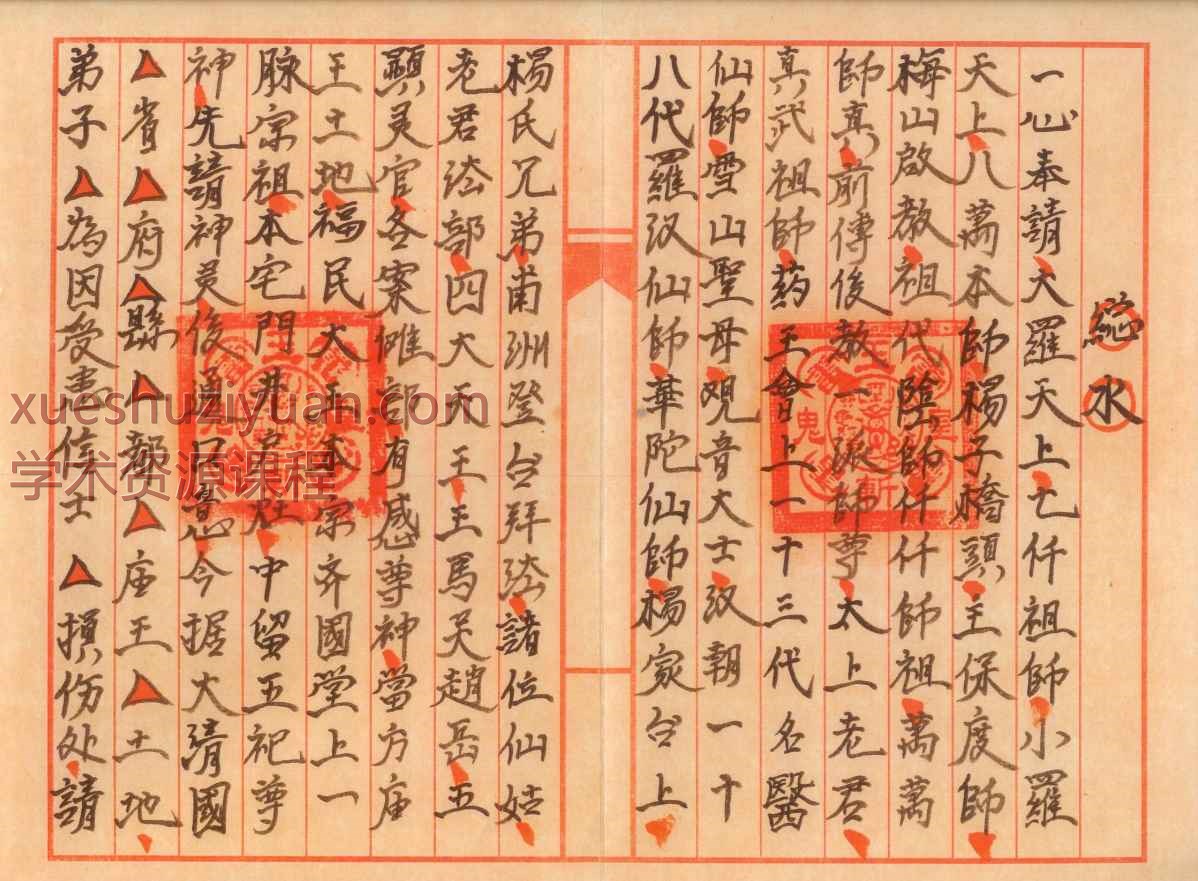 縂水
一心奉請大羅天上七仟祖師小羅
天上八萬本師楊子橋頭王保度師
梅山啟教祖代陰師仟仟師祖萬萬
師真前傳後教一派師尊太上老君
真武祖師药王會上一十三代名醫
仙師雪山聖母观音大士汉朝一十
八代羅汉仙師華陀仙師楊家台上
楊氏兄弟甫洲登台拜法諸位仙姑
老君法部四大天王王馬灵趙岳五
顯灵官各案雄部有感尊神當方庙
王土地福民大王本宗齐國堂上一
脉宗祖本宅門井灶中留五祀尊
神先請神灵後通口意今据大清國
△省△府△縣△都△庙王△土地
弟子△為因受患信士△損伤处請
xueshuziyuan.com
学术资源课程